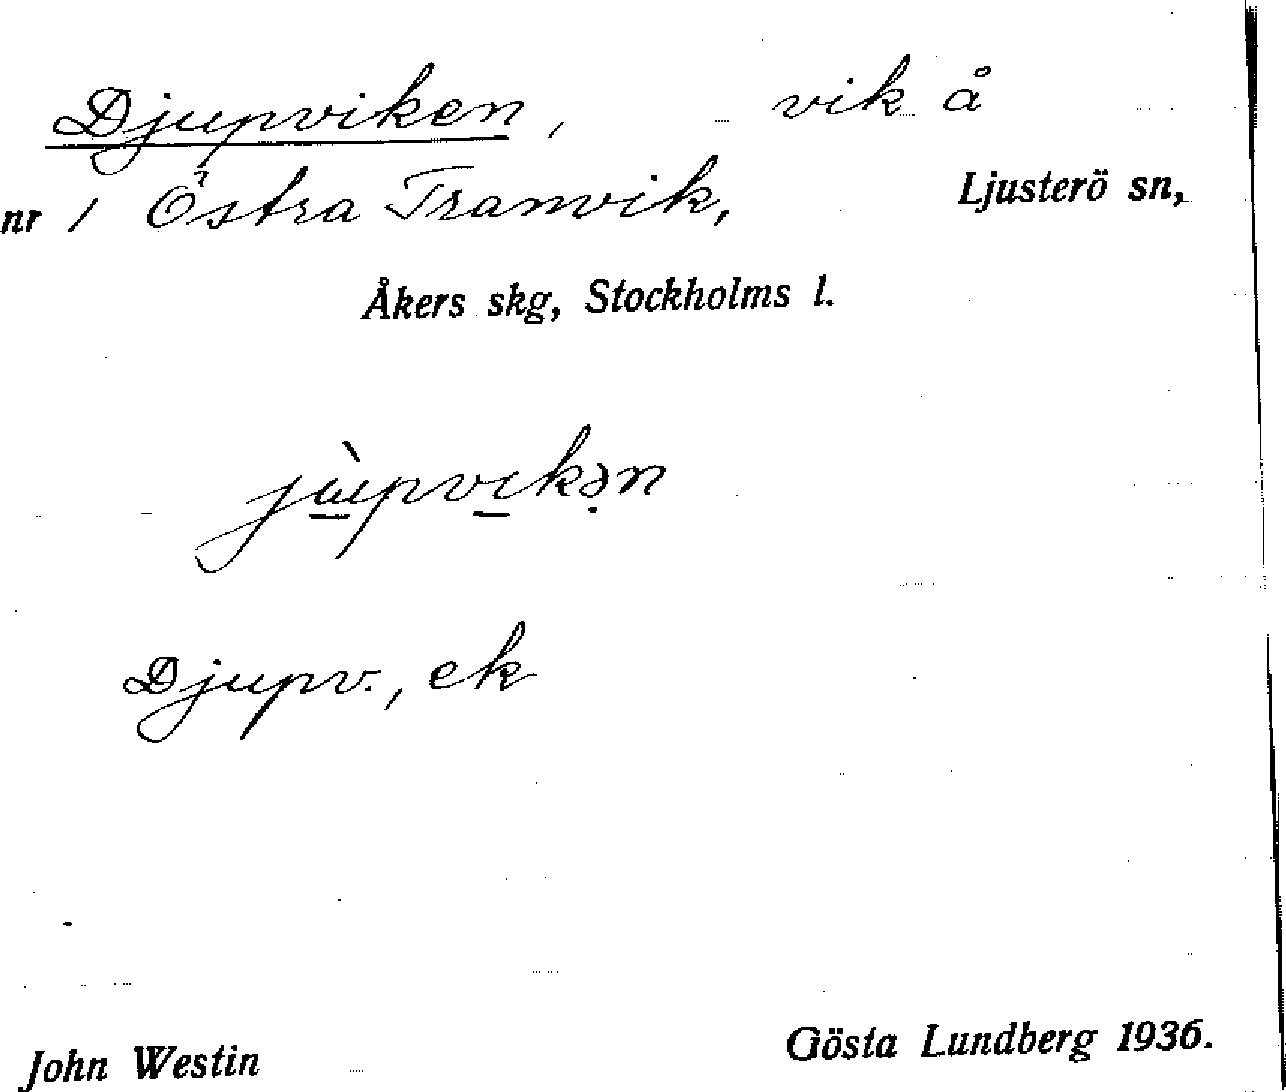 Djupviken, vik å
nr 1 Östra Tranvik, Ljusterö sn,
Åkers skg, Stockholms l.
jùpvikən
Djupv., ek
John Westin Gösta Lundberg 1936.